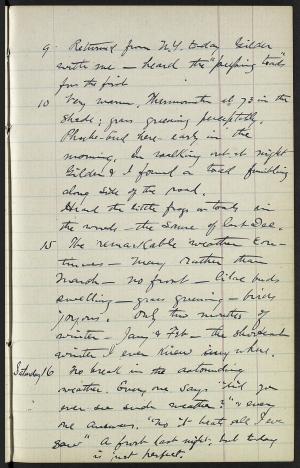 9. Returned from N.Y. today Gilder
with me - heard the "peeping toads"
for the first
10 Very warm. Thermometer at 73 in the
shade; grass greening perceptibly.
Phoebe-bird here early in the
morning. In walking out at night
Gilder & I found a toad fumbling
along side of the road.
Heard the little frogs or toads in
the woods - the same of last Dec.
15 The remarkable weather con-
tinues - May rather than
March - no frost - lilac buds
swelling - grass greening - birds
joyous. Only two months of
winter - Jany & Feb - the shortest
winter I ever knew any where.
Saturday 16 No break in the astounding
weather. Every one says "did you
ever see such weather?" & every
one answers, "No it beats all I ever
saw" A frost last night, but today
is just perfect.